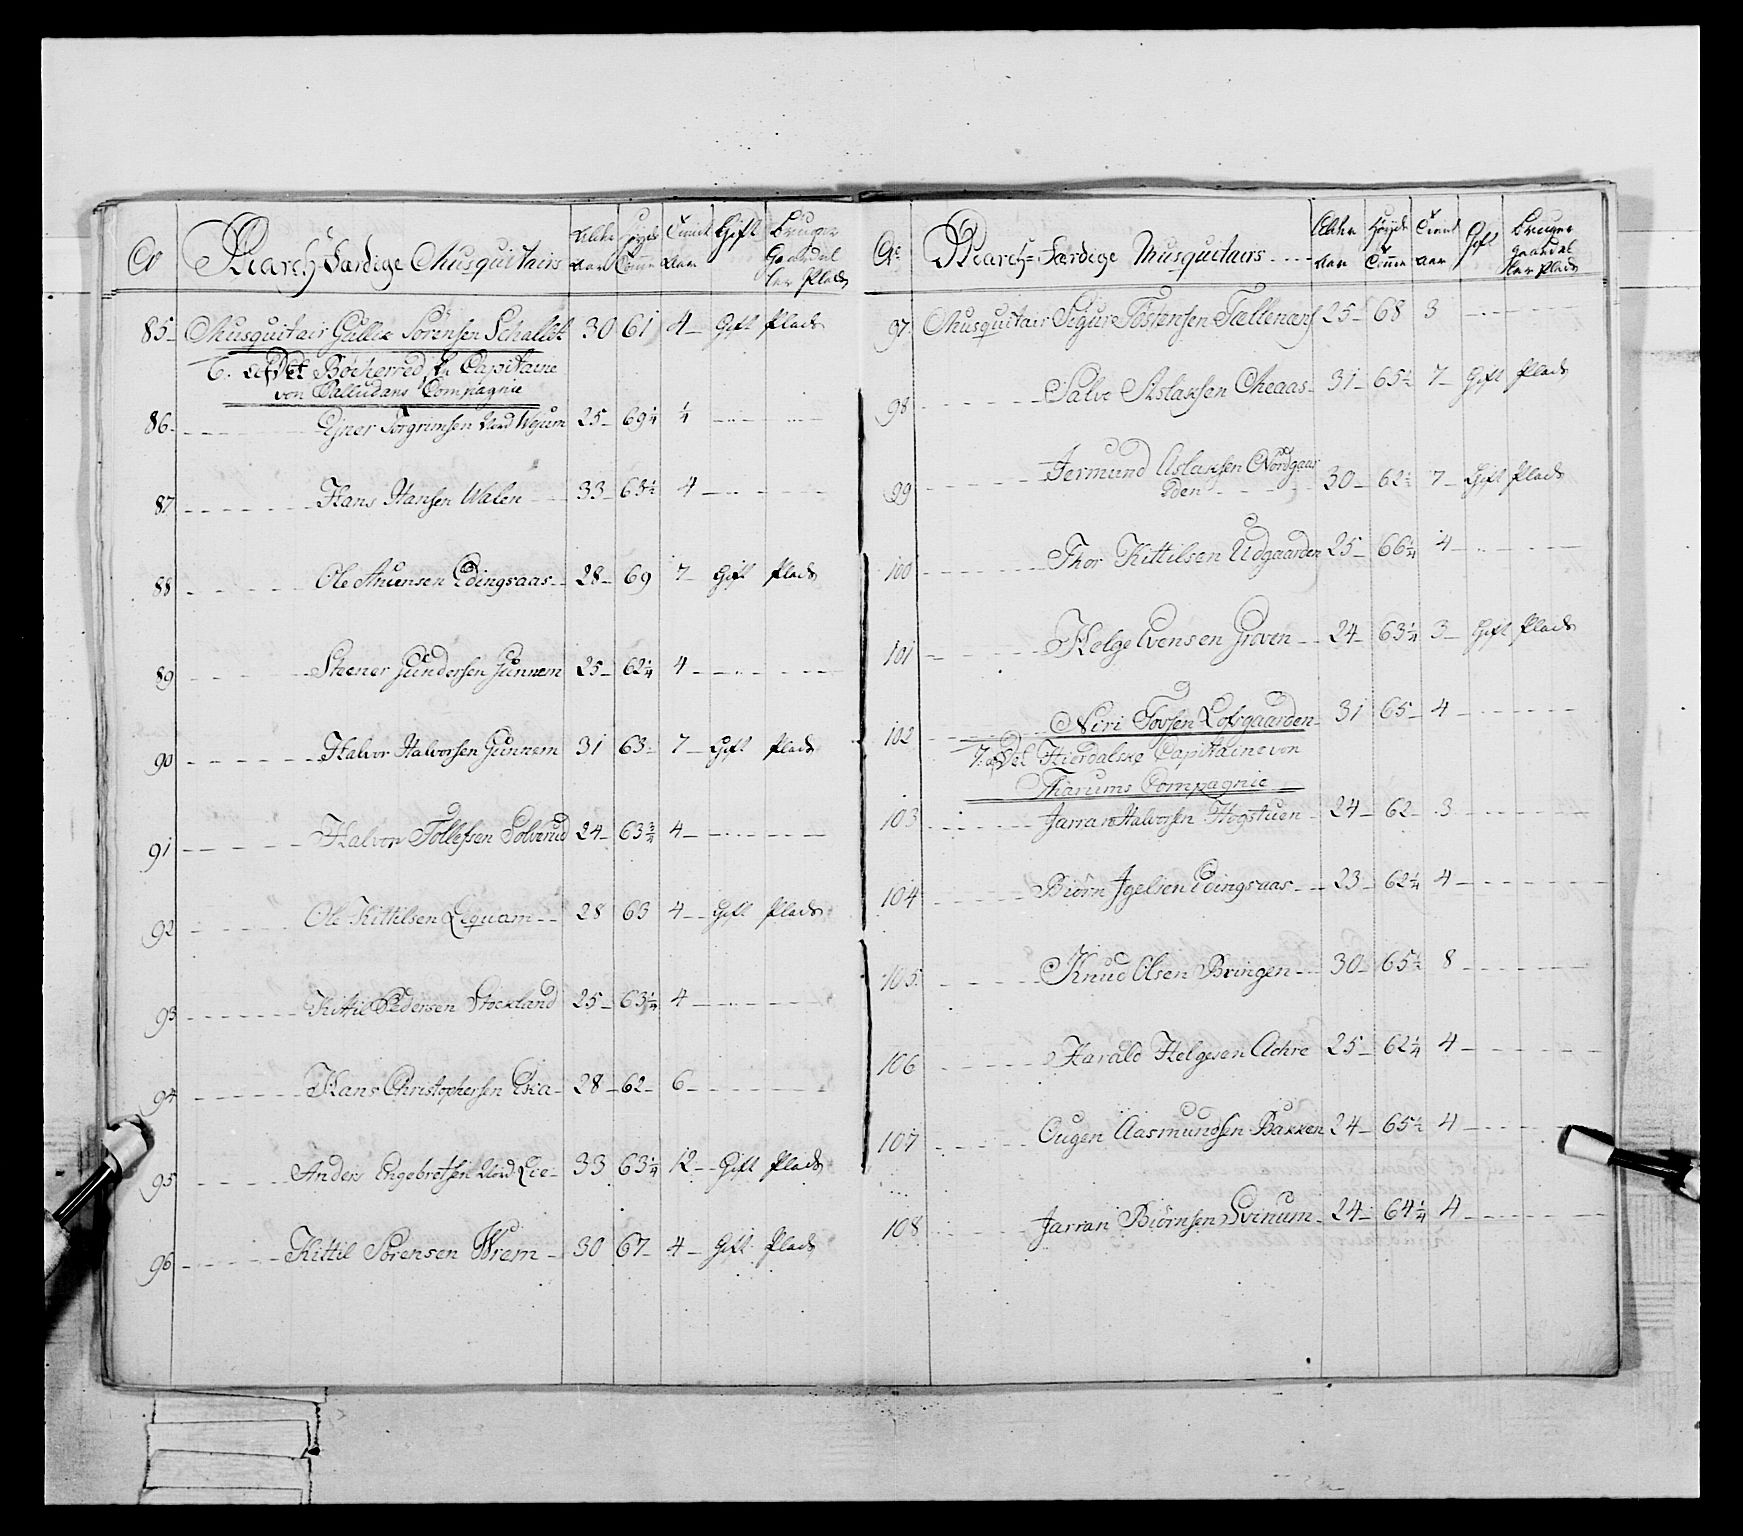 No March-Færdige Musquitairs Alder Aar Høyde Tomme Tient Aar Gift Bruger Gaard el ler Plads
85 Musquitair Gullik Sörensen Schaldt 30 61 4 Gift Plads
6. af Det Böeherred Capitaine
von Palludans Compagnie
86 Ejner Torgrimsen Nord Wejum 25 69¼ ¼
87 Hans Hansen Walen 33 63½ 4
88 Ole Anunsen Edingsaas 28 69 7 Gift Plads
89 Steener Gundersen Gunnem 25 62¼ 4
90 Halvor Halvorsen Gunnem 31 63 7 Gift Plads
91 Halvor Tollefsen Solverud 24 63¾ 4
92 Ole Kittilsen Leqvam 28 63 4 Gift Plads
93 Kittil Pedersen Stockland 25 63¼ 4
94 Hans Christophersen Eka 28 62 6
95 Anders Engebretsen Nord Lie 33 63¼ 12 Gift Plads
96 Kittil Sörensen Wrem 30 67 4 Gift Plads
No March-Færdige Musquitairs Alder Aar Høyde Tomme Tient Aar Gift Bruger Gaard el ler Plads
97 Musquitair Sigur Tostensen Tællenæs 25 68 3
98 Salve Aslaksen Moaas 31 65½ 7 Gift Plads
99 Jermund Aslaksen Nordgaar
den 30 62½ 7 Gift Plads
100 Thor Kittilsen Udgaarden 25 66¼ 4
101 Helge Evensen Groven 24 63¼ 3 Gift Plads
102 Niri Tovsen Loftsgaarden 31 65 4
7. af Det Hierdalske Capitaine von
Tharums Compagnie
103 Jarran Halvorsen Hogstuen 24 62 3
104 Biörn Igelsen Edingsaas 23 62¼ 4
105 Knud Olsen Bringen 30 65½ 8
106 Harald Helgesen Aakre 25 62¼ 4
107 Ougen Aasmundsen Bakken 24 65½ 4
108 Jarran Biörnsen Svinum 24 64¼ 4